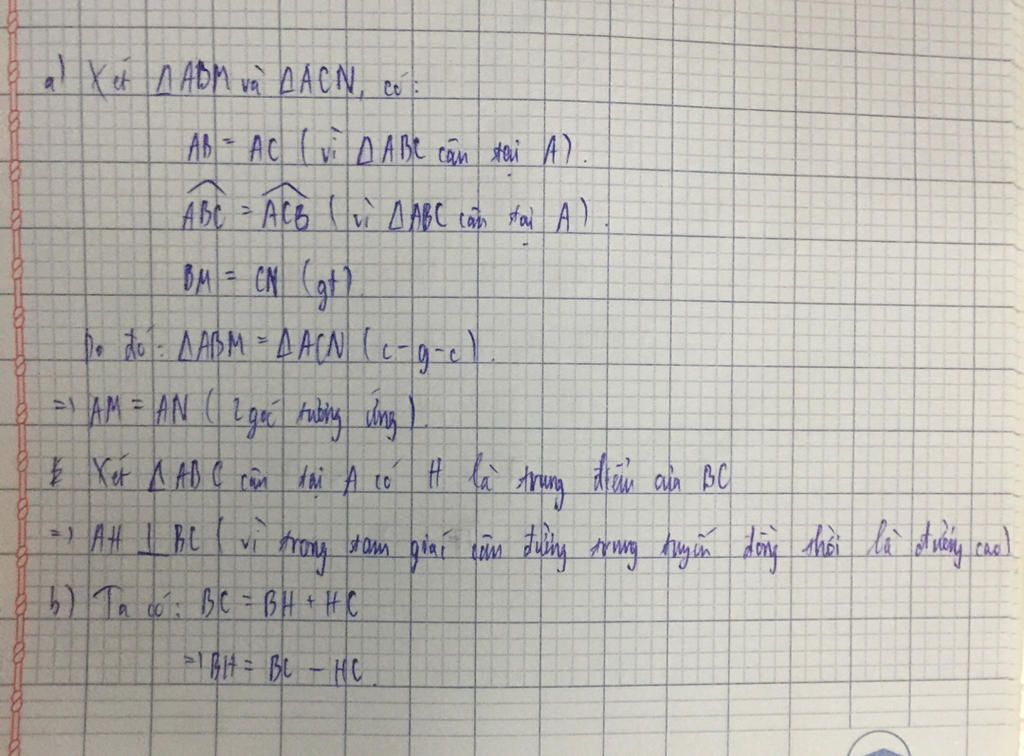 a) Xét ΔABM và ΔACN, có:
AB = AC ( vì ΔABC cân tại A).
ABC = ACB ( vì ΔABC cân tại A).
BM = CN (gt)
Do đó: ΔABM = ΔACN ( c-g-c).
=> AM = AN ( 2 góc tương ứng).
Xét ΔABC cân tại A có H là trung điểm của BC
=> AH ⊥ BC ( vì trong tam giác cân đường trung tuyến đồng thời là đường cao)
b) Ta có: BC = BH + HC
=> BH = BC - HC.